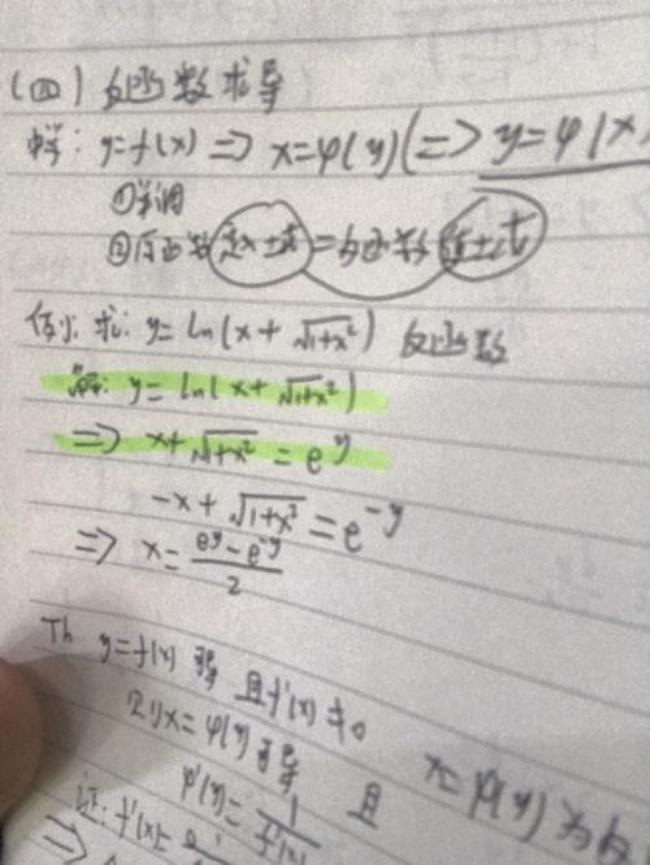 (四) 反函数求导
解: y=f(x) ⇒ x=φ(y) (⇒ y=φ(x)
①单调
②反函数 = 反函数
例1. 求: y=ln(x+√1+x²) 反函数
解: y=ln(x+√1+x²)
⇒ x+√1+x² = e^y
-x+√1+x² = e^-y
⇒ x= (e^y-e^-y)/2
Th y=f(x) 可导 且f'(x)≠0 x=φ(y) 为反
则x=φ(y) 可导 且
φ'(y)= 1/f'(x)
证: f'(x)=
⇒